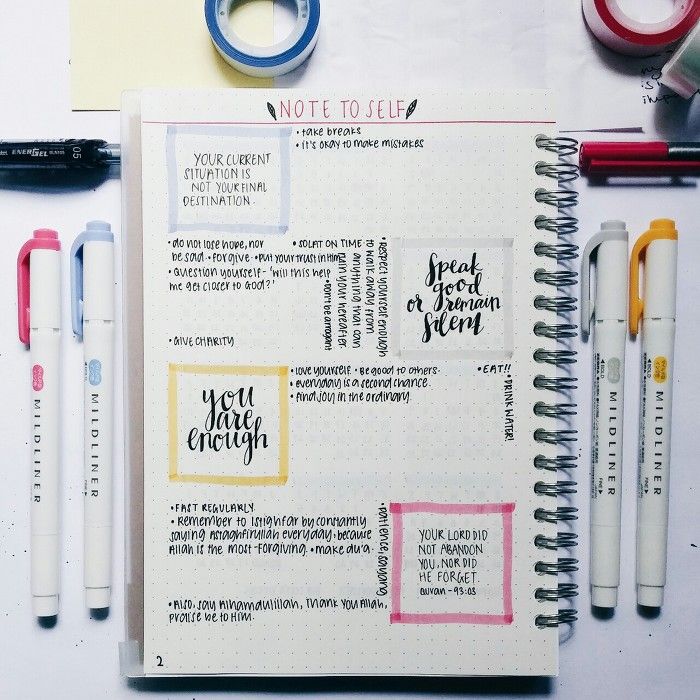 NOTE TO SELF
• take breaks
• it's okay to make mistakes
YOUR CURRENT
SITUATION IS
NOT YOUR FINAL
DESTINATION.
• do not lose hope, nor
be sad • forgive • put your trust in Him
• Question yourself - 'will this help
me get closer to God?'
• SOLAT ON TIME
• Respect yourself enough
to walk away from
anything that can
ruin your hereafter.
• Don't be arrogant
speak
good
or remain
silent
• GIVE CHARITY
you
are
enough
• love yourself • Be good to others.
• everyday is a second chance.
• find joy in the ordinary.
• EAT!!
• DRINK WATER!
• FAST REGULARLY
• Remember to Istighfar by constantly
saying Astaghfirullah everyday, because
Allah is the most-Forgiving. • make du'a.
• patience, sayang
YOUR LORD DID
NOT ABANDON
YOU, NOR DID
HE FORGET.
Quran - 93:03
• Also, say Alhamdulillah, Thank you Allah,
praise be to Him.
2
ENERGEL
05
MILDLINER
MILDLINER
MILDLINER
MILDLINER
BOLD
FINE
BOLD
FINE